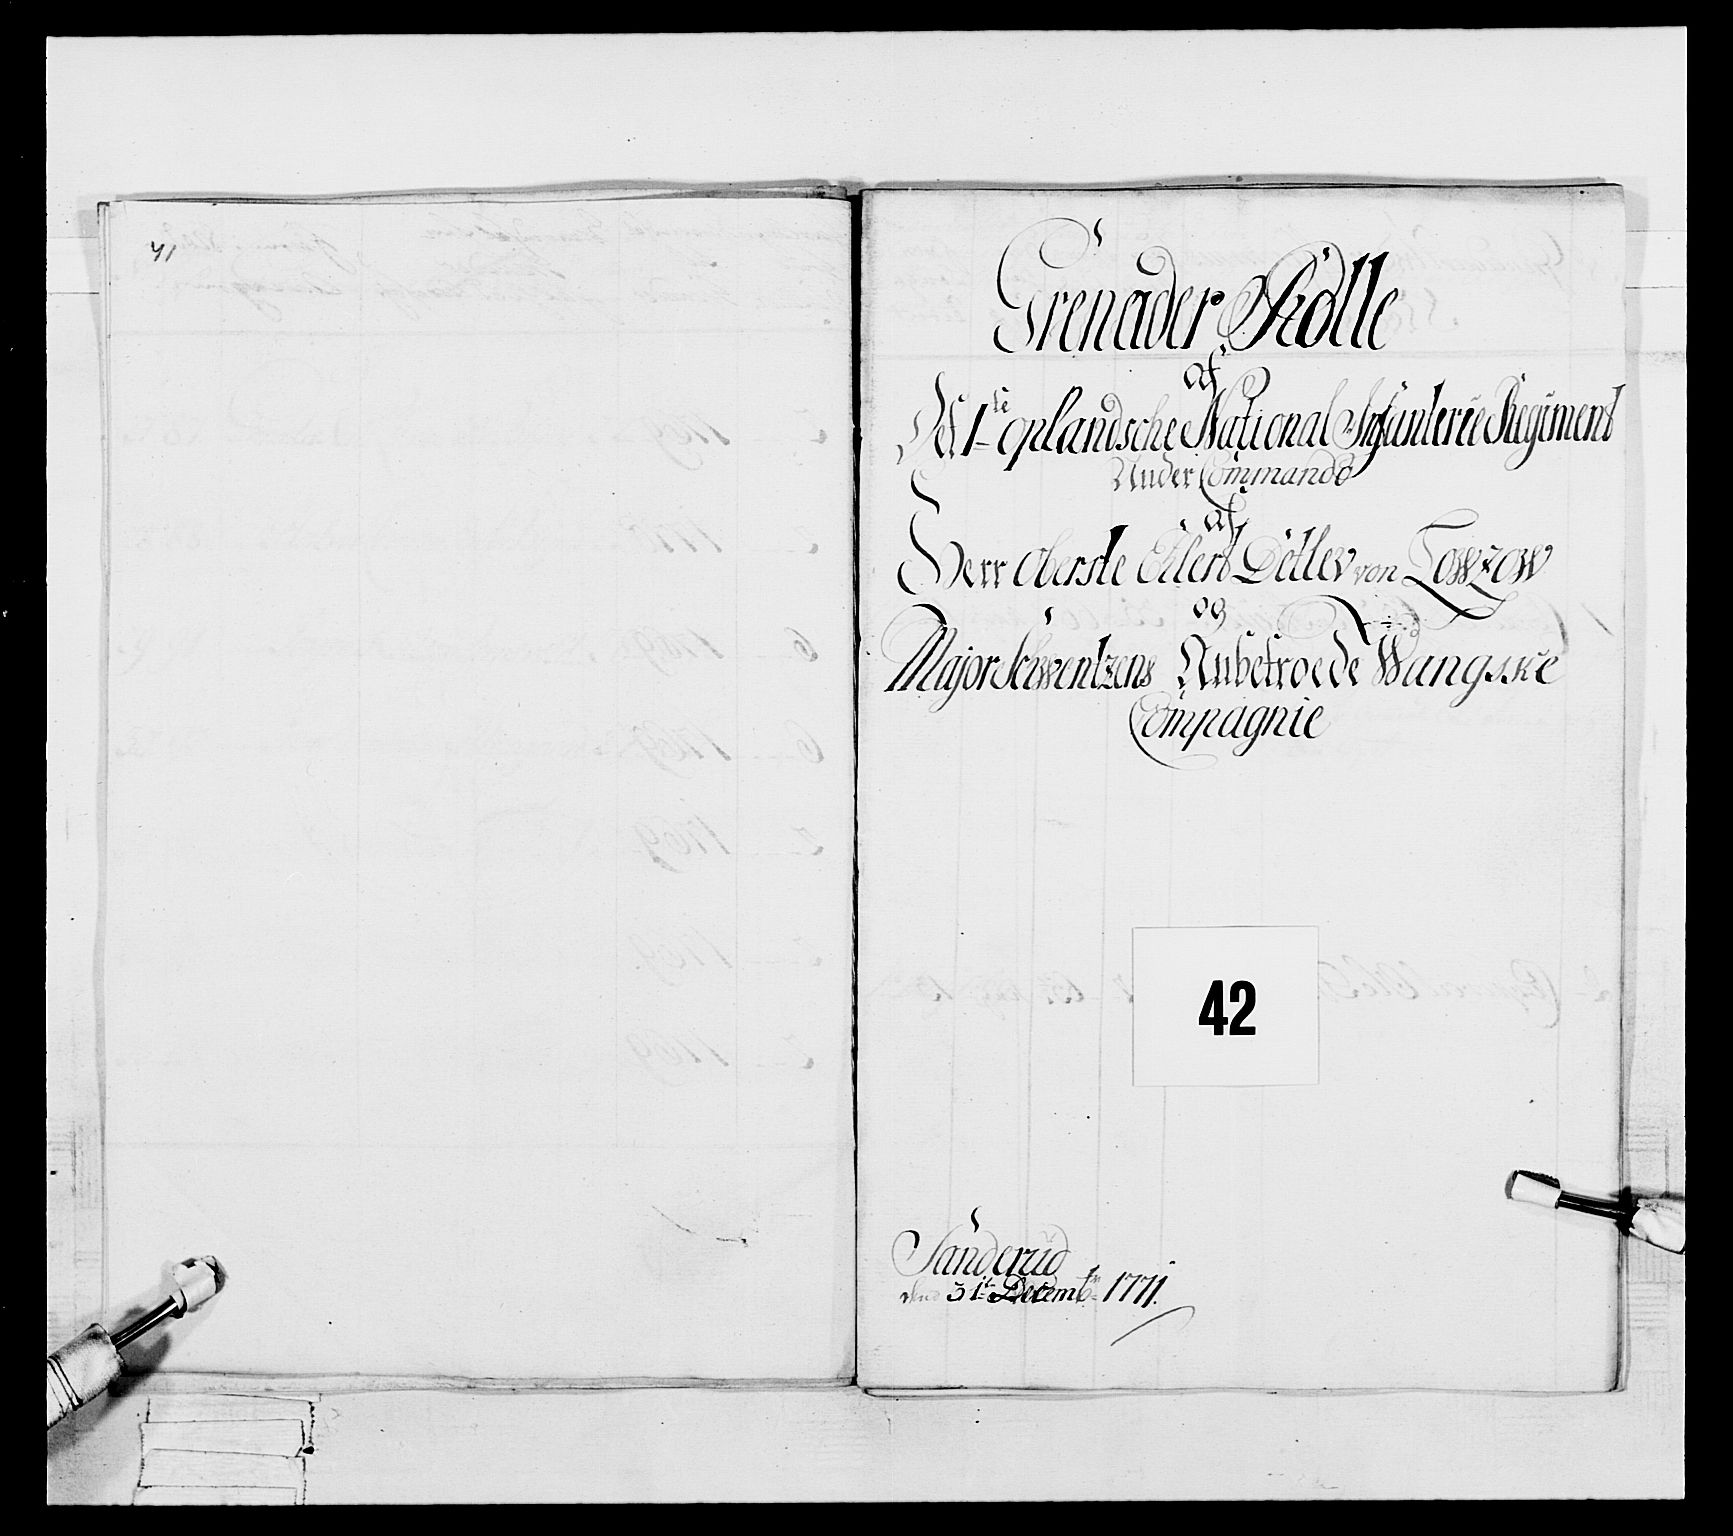 41
Grenader Rolle
af
Det 1te Oplandsche National Infanterie Regiment
Under Commando
af
Herr Oberste Eilert Detlev von Lowzow
og
Major Schwentzens Anbetroede Wangske
Compagnie
42
Sanderud
den 31te Decembr 1771.